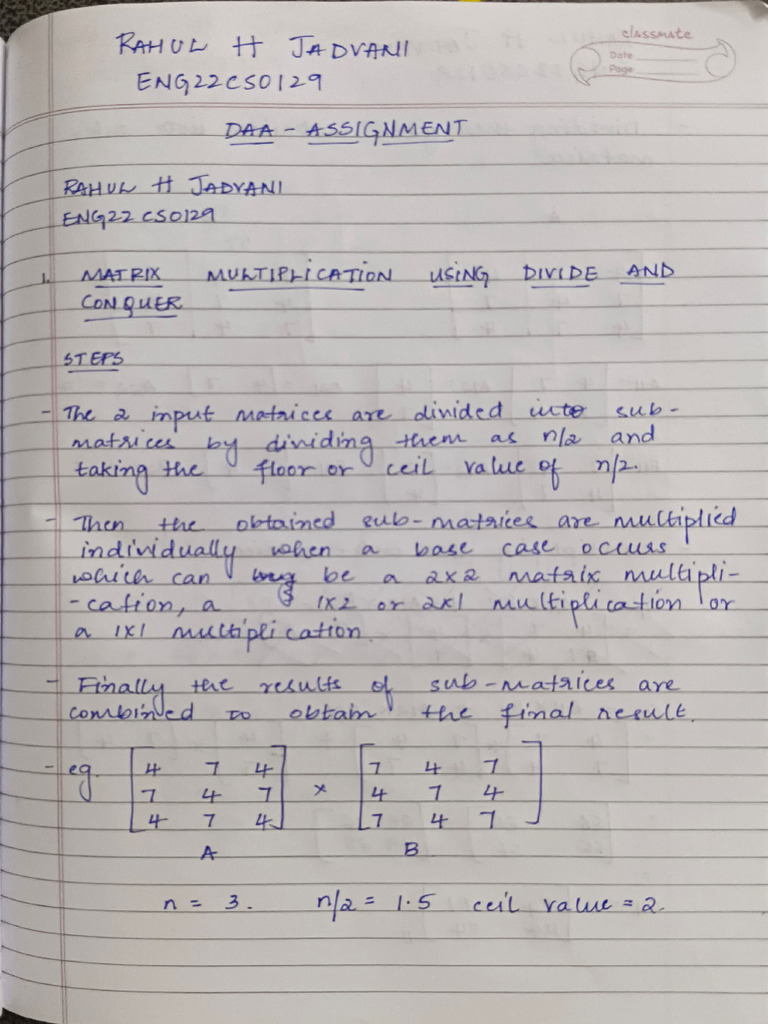 classmate
Date
Page
RAHUL H JADVANI
ENG22CS0129
DAA - ASSIGNMENT
RAHUL H JADVANI
ENG22CS0129
1. MATRIX MULTIPLICATION USING DIVIDE AND
CONQUER
STEPS
- The 2 input matrices are divided into sub-
matrices by dividing them as n/2 and
taking the floor or ceil value of n/2.
- Then the obtained sub-matrices are multiplied
individually when a base case occurs
which can be a 2x2 matrix multipli-
-cation, a 1x2 or 2x1 multiplication or
a 1x1 multiplication.
- Finally the results of sub-matrices are
combined to obtain the final result.
- eg. [4 7 4] [7 4 7]
7 4 7 x 4 7 4
4 7 4 7 4 7
A B
n = 3. n/2 = 1.5 ceil value = 2.